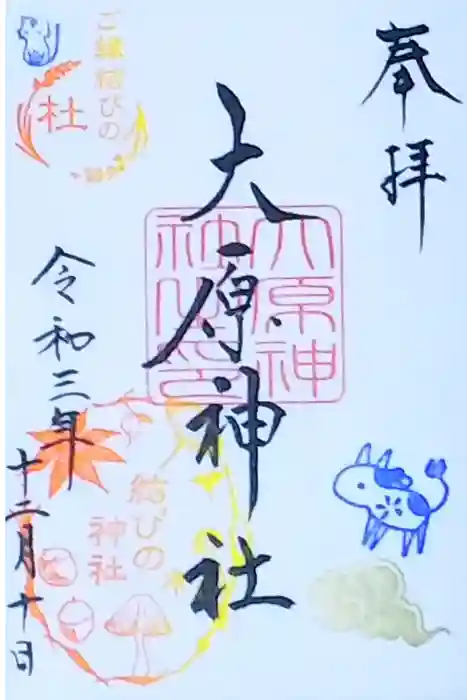 奉拝
大原神社
大原神
社之印
令和三年
十二月十日
ご縁結びの
杜
結びの
神社